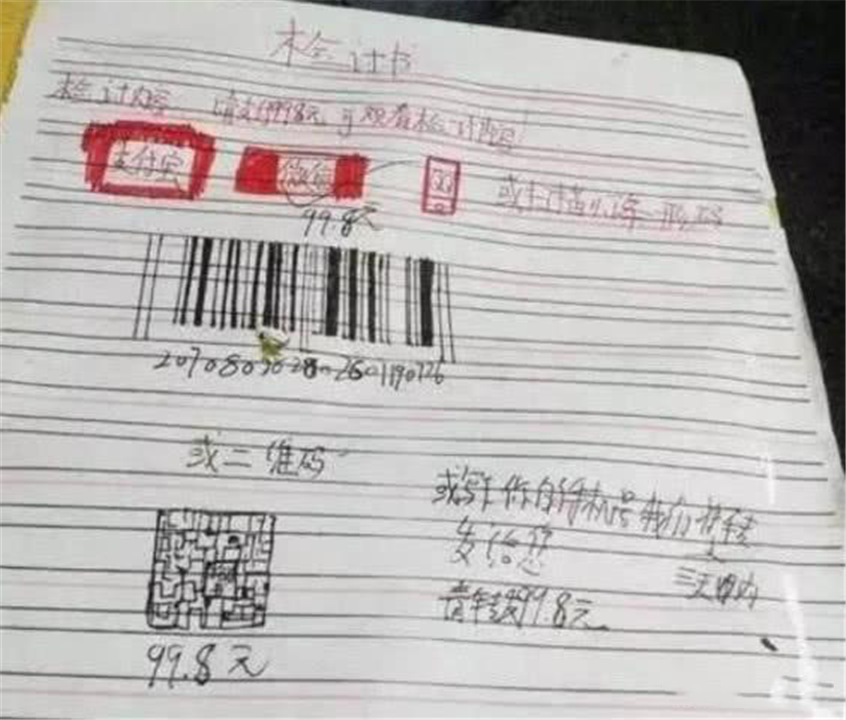 检讨书
检讨内容 请支付99.8元可观看检讨内容
支付宝 微信 或扫描以下条形码
99.8元
或二维码
或写下你的手机号我们
发给您 三天内
请转我99.8元
99.8元